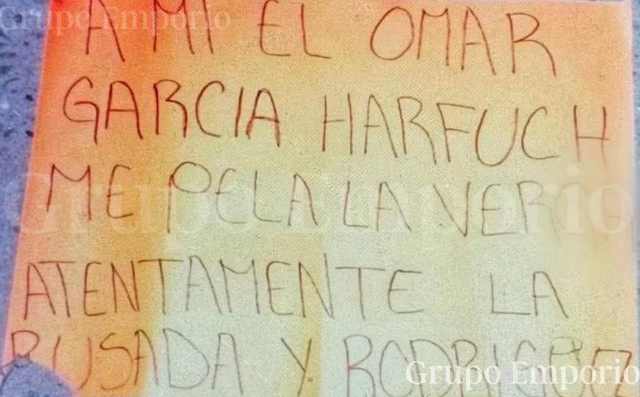 A MI EL OMAR
GARCIA HARFUCH
ME PELA LA VERGA
ATENTAMENTE LA
RUSADA Y RODRIGUEZ
Grupo Emporio
Grupo Emporio
Grupo Emporio